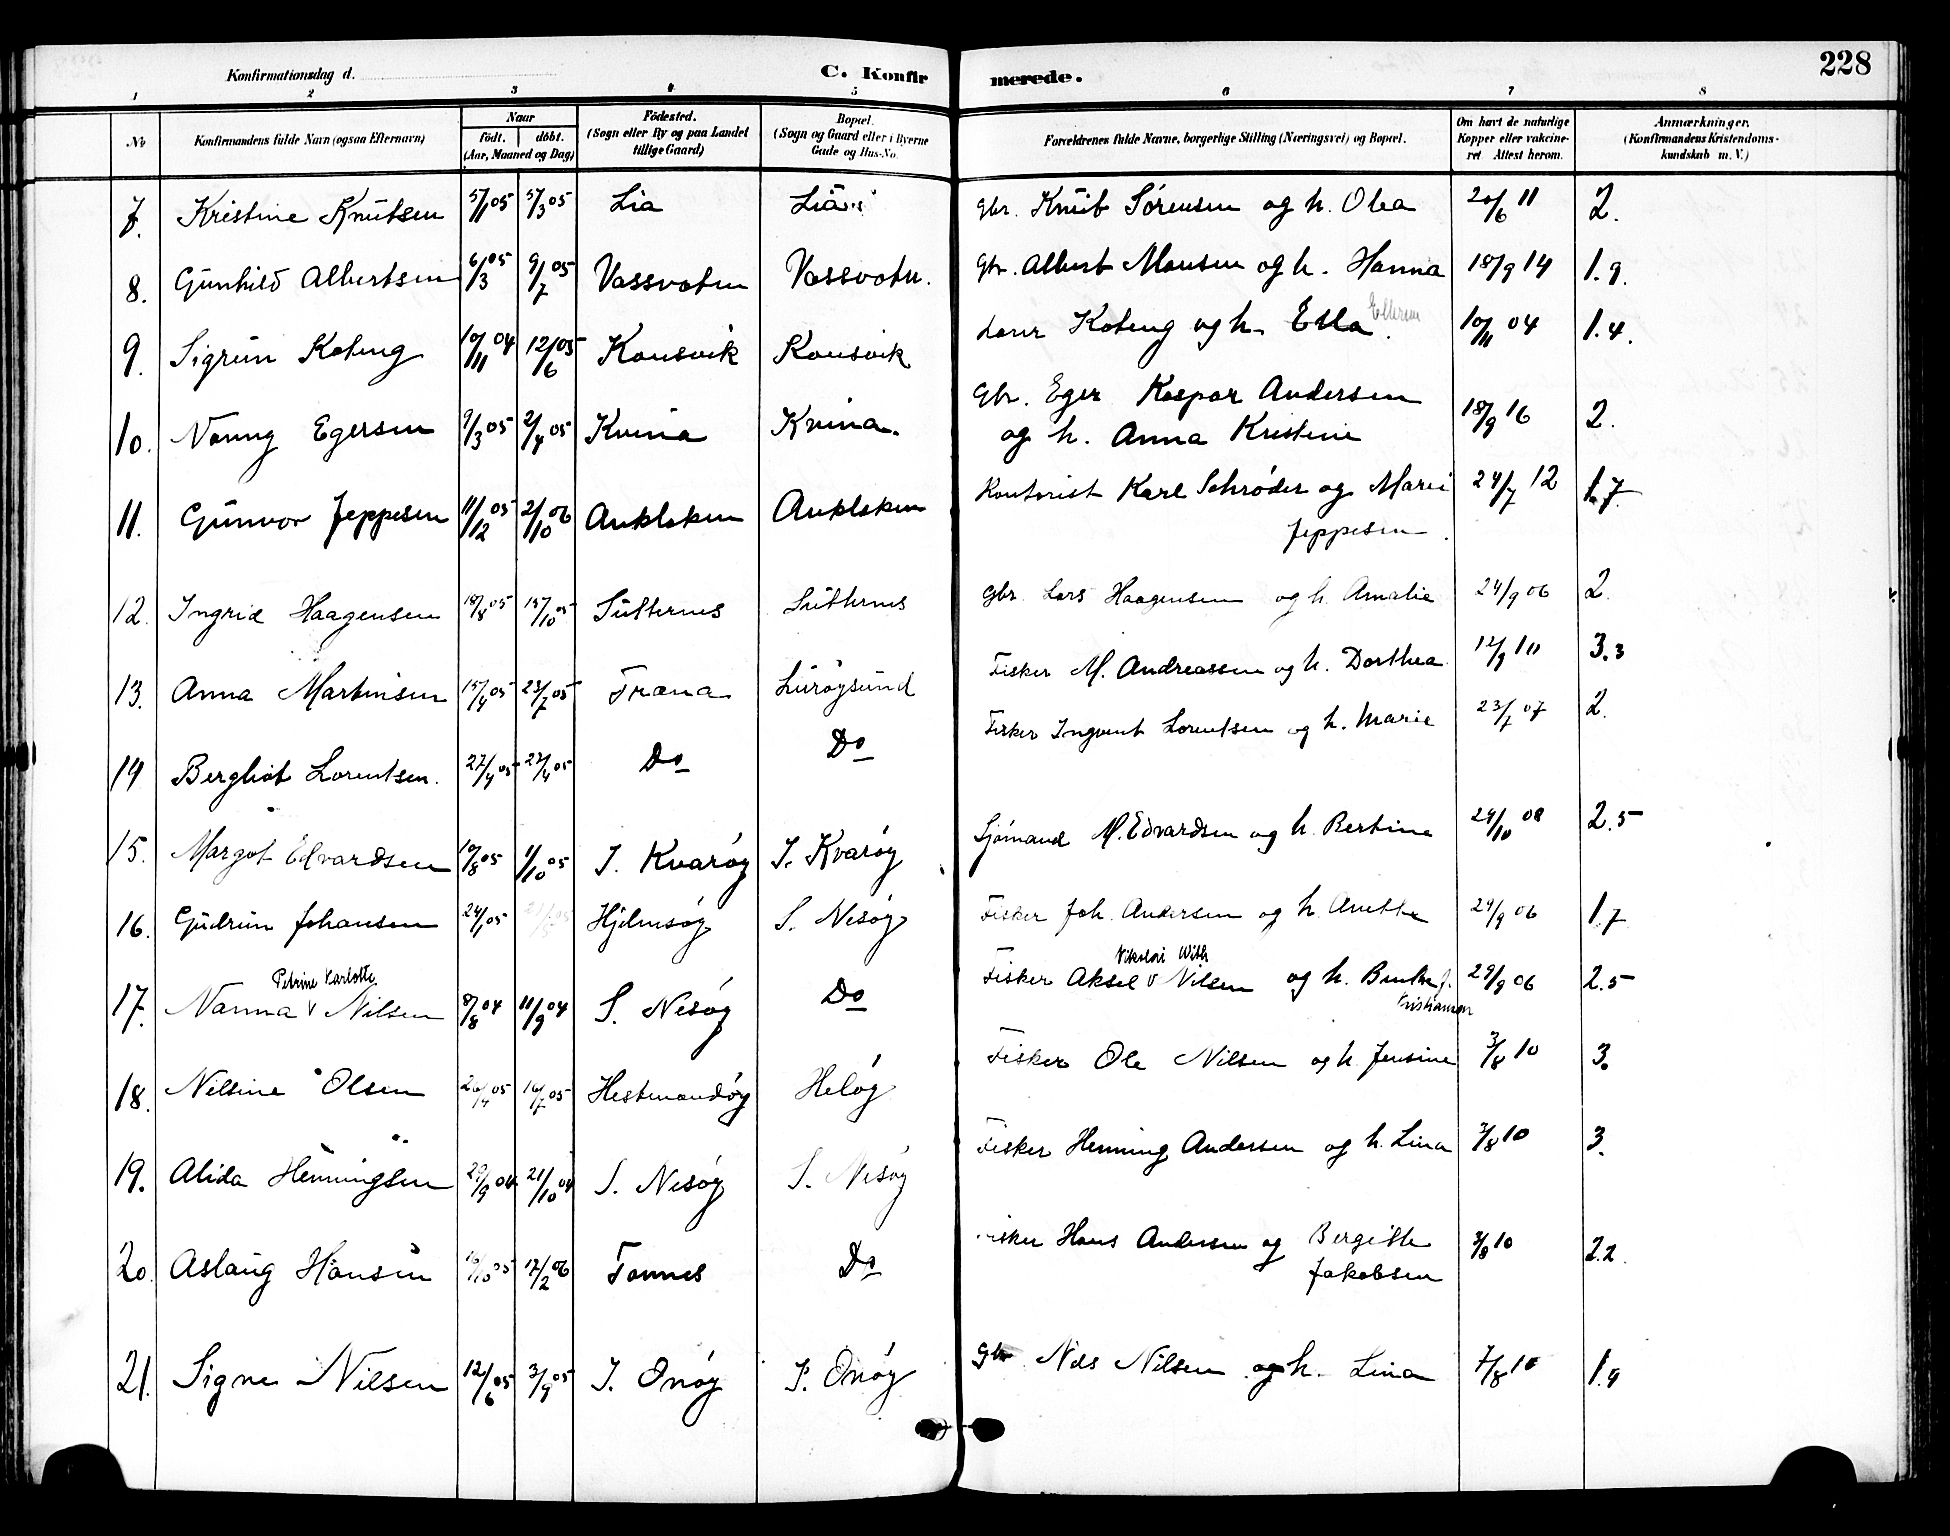 Konfirmationsdag d.
C. Konfirmerede.
228
1 2 3 4 5 6 7 8
No
Konfirmandens fulde Navn (ogsaa Efternavn)
Naar
födt. döbt.
(Aar, Maaned og Dag)
Födested.
(Sogn eller By og paa Landet
tillige Gaard)
Bopæl.
(Sogn og Gaard eller i Byerne
Gade og Hus-No.
Forældrenes fulde Navne, borgerlige Stilling (Næringsvei) og Bopæl.
Om havt de naturlige
Kopper eller vakcine-
ret Attest herom.
Anmærkninger.
(Konfirmandens Kristendoms-
kundskab m. V.)
7. Kristine Knutsen 5/1 05 5/3 05 Lia Lia gbr. Knut Sørensen og h. Olea 20/6 11 2.
8. Gunhild Albertsen 6/3 05 9/7 05 Vassvaten Vassvatn. Gbr. Albert Monsen og h. Hanna 18/9 14 1.9.
9. Sigrun Koteng 10/11 04 12/6 05 Konsvik Konsvik Koteng og h. Ella 10/11 04 1.4.
10. Nanny Egersen 9/3 05 2/4 05 Kvina Kvina. Gbr. Eger Kaspar Andersen
og h. Anna Kristine 18/9 16 2.
11. Gunvor Jeppesen 11/12 05 2/10 06 Auklaken Auklaken Kontorist Karl Schrøder og Marie
Jeppesen 24/7 12 1.7
12. Ingrid Haagensen 18/8 05 15/10 05 Sutternes Sutternes Gbr. Lars Haagensen og h. Amalie 24/9 06 2.
13. Anna Martinsen 15/4 05 23/7 05 Træna Lurøysund Fisker M. Andreassen og h. Dorthea 12/9 10 3.3
14 Bergliot Lorentsen. 27/4 05 27/4 05 Do Do Fisker Ingvart Lorentsen og h. Marie 23/7 07 2.
15. Margot Edvardsen 10/8 05 1/10 05 I. Kvarøy I. Kvarøy Sjömand M. Edvardsen og h. Bertine 24/10 08 2.5
16. Gudrun Johansen 24/1 05 Hjelmsøy S. Nesøy Fisker Joh. Andersen og h. Anette 24/9 06 1.7
Petrine Karlotte
Nikolai With
17. Nanna V Nilsen 8/8 04 11/9 04 S. Nesøy Do Fisker Aksel V Nilsen og h. Binthe J.
Kristiansen 29/9 06 2.5
18. Nilsine Olsen 26/4 05 16/7 05 Hestmandøy Heløy Fisker Ole Nilsen og h. Jensine 3/8 10 3.
19. Alida Henningsen 29/9 04 21/10 04 S. Nesøy S. Nesøy Fisker Henning Andersen og h. Lina 7/8 10 3.
20. Aslaug Hansen 10/10 05 17/2 06 Tonnes Do Fisker Hans Andersen og Bergitte
Jakobsen 3/8 10 2.2.
21. Signe Nilsen 12/6 05 3/9 05 I. Onøy I. Onøy Gbr Nils Nilsen og h. Lina 7/8 10 1.9